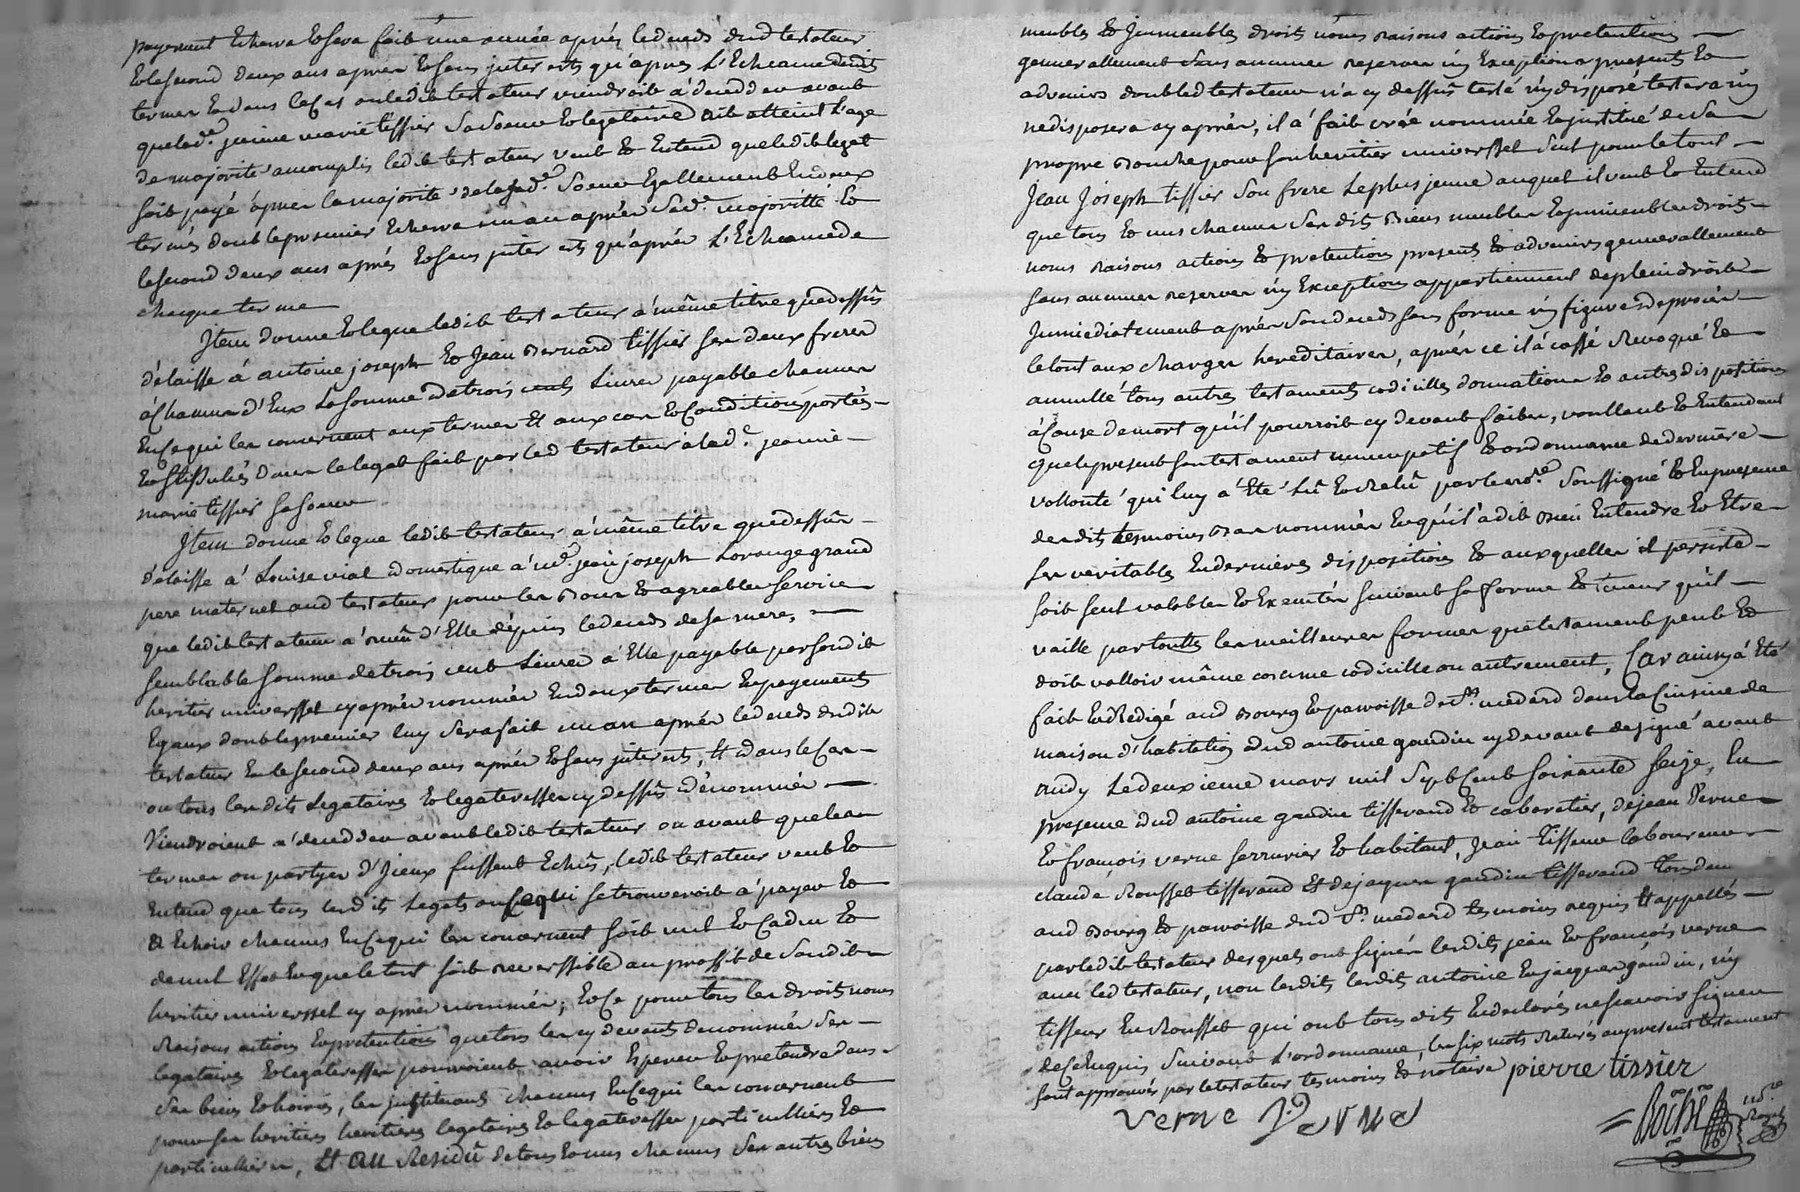 payement Echerra & sera fait une année aprés le deceds dud testateur
& le second deux ans apres & sans interests qu'apres L'Echeance desdits
termes & dans le cas ou ledit testateur viendroit à deceder avant
que lad.e jeanne marie tissier sa soeur & legataire ait atteint l'age
de majorité accomplis ledit testateur veut & Entend que ledit legat
soit payé apres la majorité de lasd.e soeur Egallement En deux
termes dont le premier Echerra un an aprés sad.e majoritté &
le second deux ans aprés & sans interests qu'aprés L'Echeance de
chaque terme
Item donne & legue ledit testateur à même titre que dessus
délaisse à antoine joseph & Jean Bernard tissier ses deux freres
à Chacun d'Eux La somme de trois cents Livres payable chacun
En Ce qui les concernent aux termes Et aux cas & Conditions portés
& stipulés dans le legat fait par led testateur a lad.e jeanne
marie tissier sa soeur
Item donne & legue ledit testateur à même titre que dessus
délaisse à Louise vial domestique à jean joseph Lorange grand
pere maternel dud testateur pour les Bons & agreables service
que ledit testateur a reçu d'Elle dépuis le deceds de sa mere,
semblable somme de trois cent Livres à Elle payable par sondit
heritier universsel cy aprés nommée En deux termes En payements
Egaux dont le premier luy sera fait un an aprés le deceds dudit
testateur & le second deux ans aprés & sans interests, Et dans le Cas
ou tous lesdits Legataires & legateresses cy dessus dénommés
Viendroient a deceder avant ledit testateur ou avant que les
termes ou partyes d'Iceux fussent Echus, ledit testateur veut &
Entend que tous lesdits Legats ou Ce qui se trouveroit à payer &
à Echoir chacuns En Ce qui les concernent soit nul & Caduc &
de nul Effet & que le tout soit reverssible au proffit de Sondit
heritier universsel cy aprés nommée; & Ce pour tous les droits noms
Raisons actions & pretentions que tous les cy devants denommés ses
legataires & legateresses pourroient avoir Esperer & pretendre dans
ses biens & hoiries, les Instituant chacuns En Ce qui les concernent
pour ses heritiers heritieres legataires & legateresses particulliers &
particullieres, Et au Residu de tous & uns chacuns Ses autres biens
meubles & Immeubles droits noms raisons actions & pretentions
generallement sans aucunes reserves ny Exceptions presents &
advenirs dont led testateur n'a cy dessus testé ny disposé testera ny
ne disposera cy aprés, il a fait créé nommée & institué de Sa
propre Bouche pour son heritier universsel Seul pour le tout
Jean Joseph tissier Son frere Le plus jeune auquel il veut & Entend
que tous & uns chacuns Sesdits Biens meubles & immeubles droits
noms Raisons actions & pretentions presents & advenirs generallement
sans aucunes reserves ny Exceptions appartiennent de plein droit
Immediatement aprés son deceds sans forme ny figure de procés
le tout aux charges hereditaires, aprés ce il à cassé Revoqué &
annullé tous autres testaments codicilles donnations & autres dispositions
à Cause de mort qu'il pourroit cy devant faites, voullant & Entendant
que le present son testament nuncupatif & ordonnance de derniere
vollonté qui luy à Eté Lû & Relû par le no.re Soussigné & En presence
desdits tesmoins Bas nommés & qu'il a dit Bien Entendre & Etre
ses veritables En dernieres dispositions & auxquelles il persiste
soit seul valables & Executés suivant sa forme & teneur qu'il
vaille par toutte les meilleures formes que testament peut &
doit valloir même comme codicille ou autrement, Car ainsy à Eté
fait & Redigé aud Bourg & paroisse de St. medard dans la Cuisine de
maison d'habitation dud antoine gaudin cy devant designé avant
midy Le deuxieme mars mil Sept Cent soixante seize, En
presence dud antoine gaudin tisserand & cabaretier, de jean Verne
& françois verne serrurier & habitant, Jean tisseur laboureur
claude Rousset tisserand Et de jacques gaudin tisserand tous deux
aud Bourg & paroisse dud St. medard tesmoins requis Et appellés
par ledit testateur desquels ont signés lesdits jean & françois verne
avec led testateur, non lesdits lesdits antoine & jacques gaudin, ny
tisseur & Rousset qui ont tous dits & declarés ne sçavoir signer
de Ce Enquis Suivant L'ordonnance, les six mots Raturés au present testament
sont approuvés par le testateur tesmoins & notaire pierre tissier
verne Verne